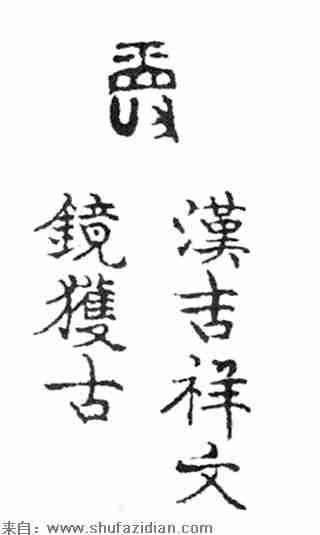 漢吉祥文
鏡獲古
来自：www.shufazidian.com